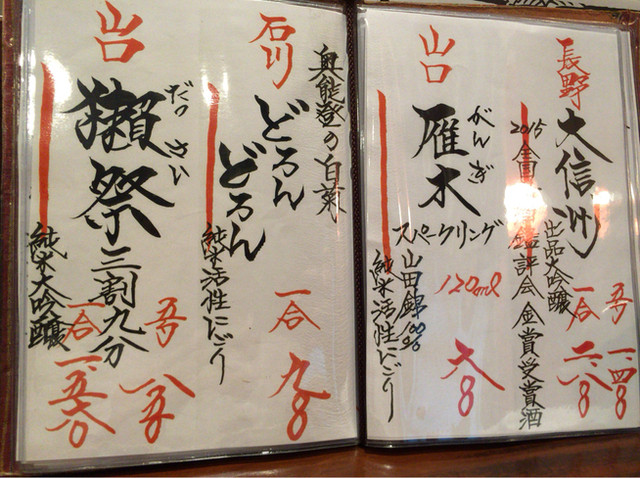 長野
大信州
出品大吟醸
2015全国
鑑評会金賞受賞酒
五勺 一、四〇
一合 二、八〇
山口
がんぎ
雁木
スペークリング
山田錦100%
純米活性にごり
120ml
六八〇
奥能登の白菊
石川
どろん
どろん
純米活性にごり
一合
九八〇
山口
だっさい
獺祭
三割九分
純米大吟醸
五勺
八五〇
一合
一、五六〇